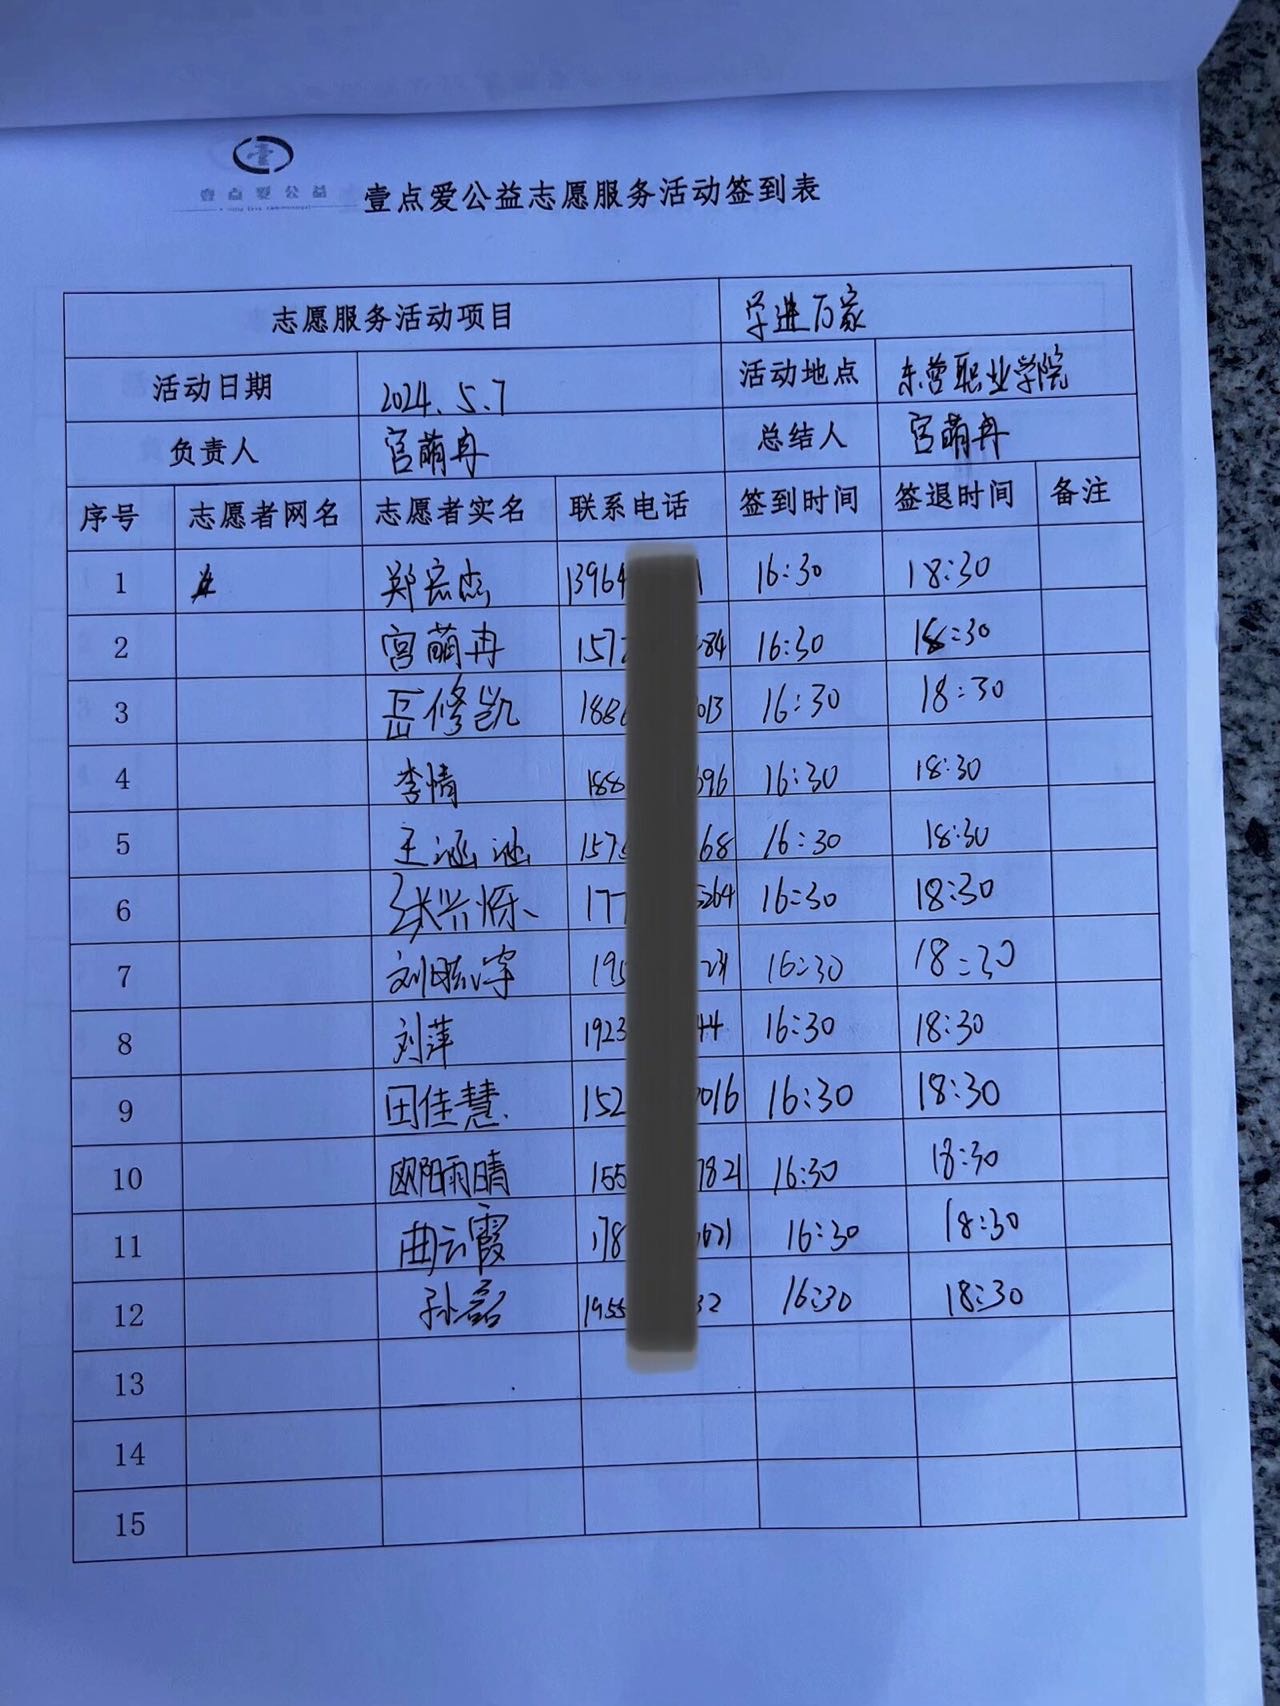 壹点爱公益
壹点爱公益志愿服务活动签到表
志愿服务活动项目 学进万家
活动日期 2024.5.7 活动地点 东营职业学院
负责人 宫萌冉 总结人 宫萌冉
序号 志愿者网名 志愿者实名 联系电话 签到时间 签退时间 备注
1 郑宏杰 13964 1 16:30 18:30
2 宫萌冉 157 84 16:30 18:30
3 岳修凯 188 013 16:30 18:30
4 李情 188 696 16:30 18:30
5 王涵池 157 68 16:30 18:30
6 张兴烁 177 264 16:30 18:30
7 刘 195 16:30 18:30
8 刘萍 1923 44 16:30 18:30
9 田佳慧 152 016 16:30 18:30
10 欧阳雨晴 155 7821 16:30 18:30
11 曲云霞 178 1671 16:30 18:30
12 孙磊 1955 32 16:30 18:30
13
14
15